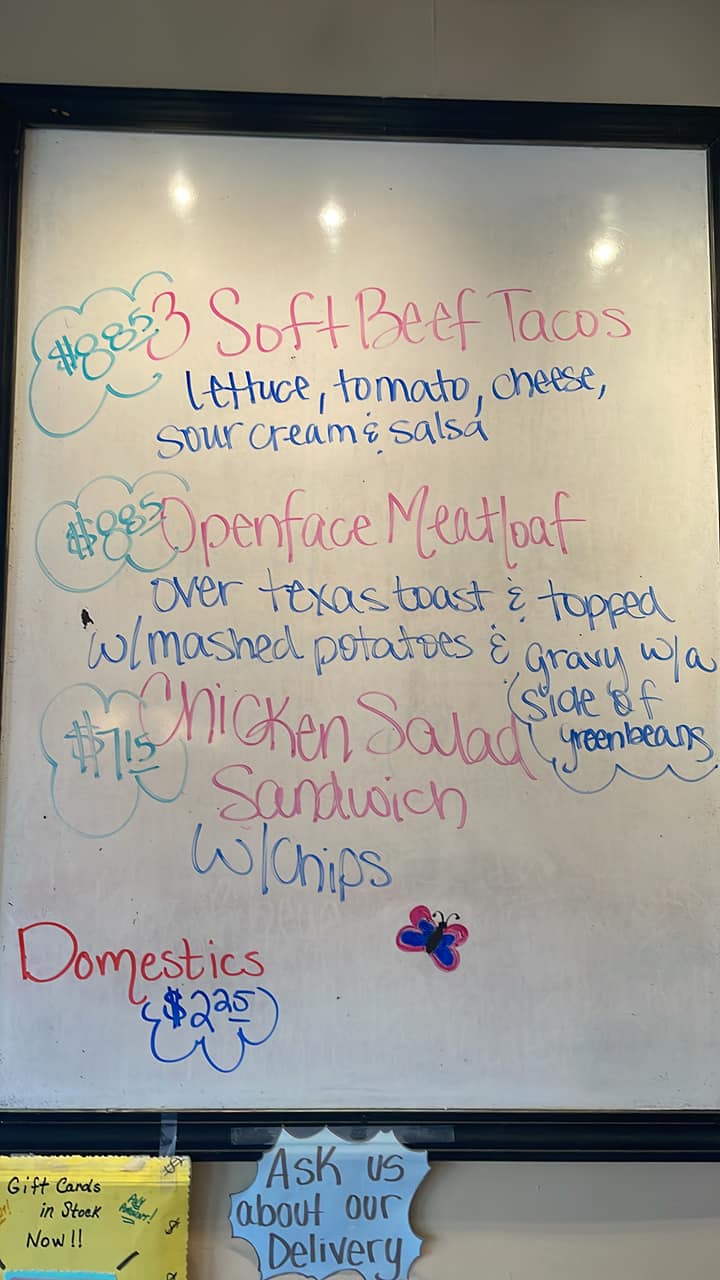 $8.85 3 Soft Beef Tacos
lettuce, tomato, cheese,
sour cream & salsa
$8.85 Openface Meatloaf
over texas toast & topped
w/mashed potatoes & gravy w/a
side of
greenbeans
$7.15 Chicken Salad
Sandwich
w/chips
Domestics
$2.25
Gift Cards
in Stock
Now!!
Any
Amount!
Ask us
about our
Delivery